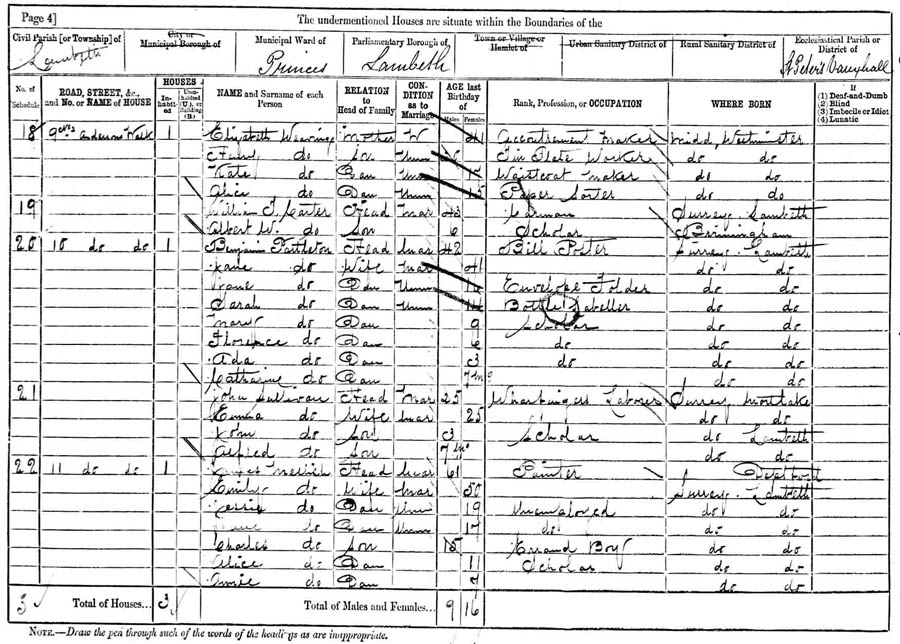 Page 4] The undermentioned Houses are situate within the Boundaries of the
Civil Parish [or Township] of City or Municipal Borough of Municipal Ward of Parliamentary Borough of Town or Village or Hamlet of Urban Sanitary District of Rural Sanitary District of Ecclesiastical Parish or District of
Lambeth Princes Lambeth St Peter's Vauxhall
No. of Schedule ROAD, STREET, &c., and No. or NAME of HOUSE HOUSES In-habited Unin-habited (U.), or Building (B.) NAME and Surname of each Person RELATION to Head of Family CON-DITION as to Marriage AGE last Birthday of Males Females Rank, Profession, or OCCUPATION WHERE BORN If (1) Deaf-and-Dumb (2) Blind (3) Imbecile or Idiot (4) Lunatic
18 Anderson Walk 1 Elizabeth Mother W 41 Accoutrement Maker Midd. Westminster
do Son Unm Tin Plate Worker do do
Kate do Dau Waistcoat Maker do do
Alice do Dau Unm Paper Sorter do do
19 William J. Carter Head Mar 43 Carman Surrey Lambeth
Albert W. do Son 6 Scholar Birmingham
20 10 do do 1 Benjamin Head Mar 42 Bill Poster Surrey Lambeth
Jane do Wife Mar 41 do do
Jane do Dau Unm Envelope Folder do do
Sarah do Dau Unm 14 Bottle Labeller do do
Mary do Dau 9 Scholar do do
Florence do Dau 6 do do do
Ada do Dau 3 do do do
Catharine do Dau 7 mo do do
21 John Sullivan Head Mar 25 Laborer Surrey Mortlake
Emma do Wife Mar 25 do do
John do Son 3 Scholar do Lambeth
Alfred do Son 7 mo do do
22 11 do do 1 James Head Mar 61 Painter Deptford
Emily do Wife Mar 50 Surrey Lambeth
do Dau Unm 19 Unemployed do do
do Dau Unm 17 do do do
Charles do Son 15 Errand Boy do do
Alice do Dau 11 Scholar do do
Annie do Dau do do
3 Total of Houses... 3 Total of Males and Females... 9 16
NOTE.—Draw the pen through such of the words of the headings as are inappropriate.